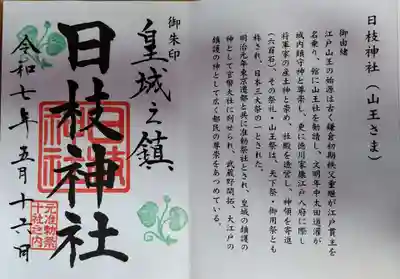 御朱印
皇城之鎮
日枝神社
令和七年五月十六日
元准勅祭
十社之内
日枝神社（山王さま）
御由緒
江戸山王の始源は古く鎌倉初期秩父重継が江戸貫主を
名乗り、館に山王社を勧請し、文明年中太田道灌が
城内鎮守神と尊崇し、更に徳川家康江戸入府に際し
将軍家の産土神と崇め、社殿を造営し、神領を寄進
（六百石）、その祭礼・山王祭は、天下祭・御用祭とも
称され、日本三大祭の一とされた。
明治元年東京遷都と共に准勅祭社とされ、皇城の鎮護の
神として官幣大社に列せられ、武蔵野開拓、大江戸の
鎮護の神として広く都民の尊崇をあつめている。